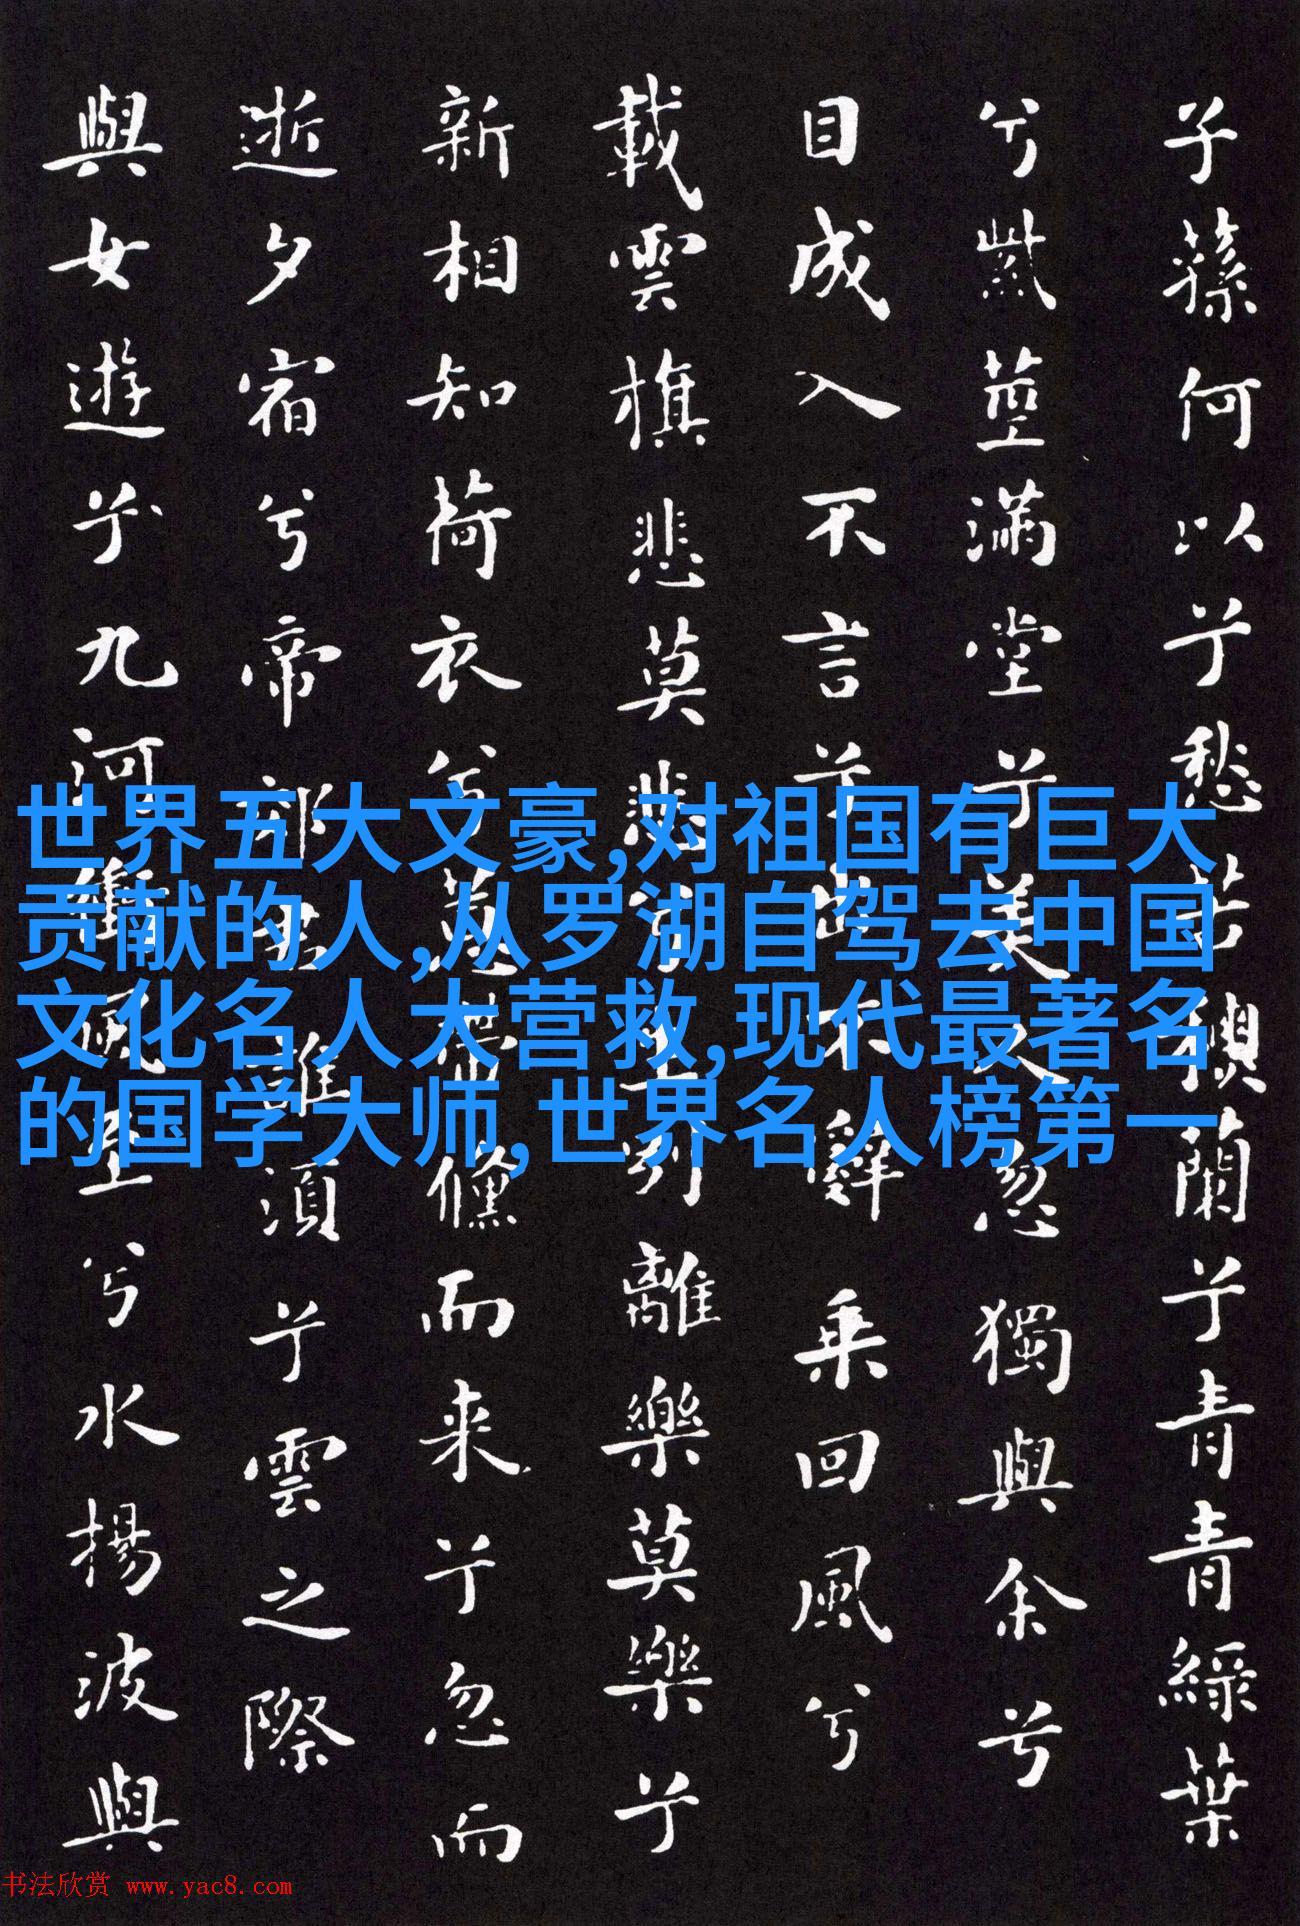 子蓀何以兮愁苦蘭兮青青綠葉
兮紫莖滿堂兮美人忽獨與余兮
目成入不言兮出不辭乘回風兮
載雲旗悲莫悲兮生別離樂莫樂兮
新相知荷衣兮蕙帶儵而来兮忽而
逝夕宿兮帝郊君誰須兮雲之際
與女遊兮九河衝風至兮水揚波與
世界五大文豪,对祖国有巨大
贡献的人,从罗湖自驾去中国
文化名人大营救,现代最著名
的国学大师,世界名人榜第一
书法欣赏 www.yac8.com